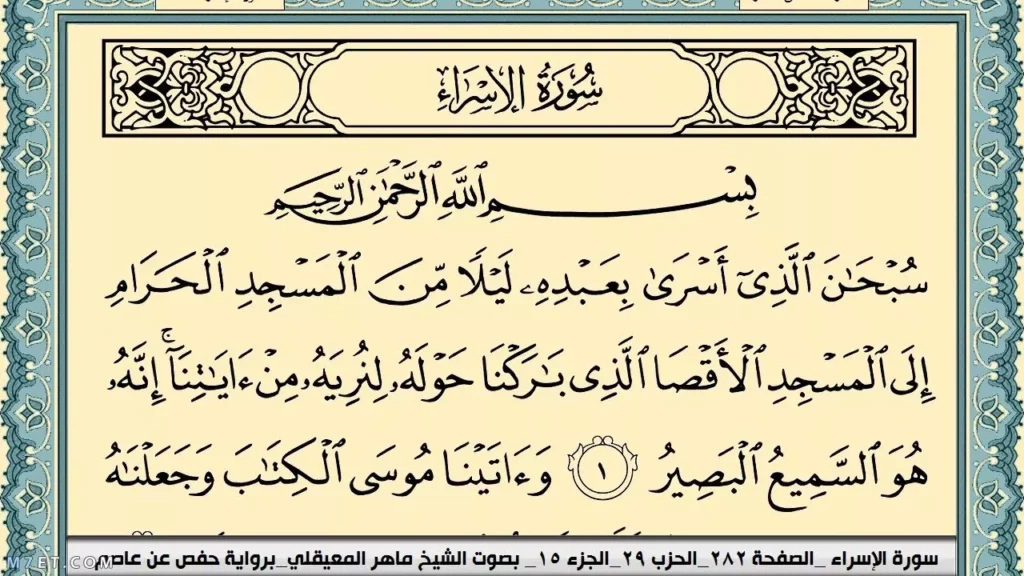 سُورَةُ الإِسْرَاءِ
بِسْمِ ٱللَّهِ ٱلرَّحْمَٰنِ ٱلرَّحِيمِ
سُبْحَٰنَ ٱلَّذِىٓ أَسْرَىٰ بِعَبْدِهِۦ لَيْلًا مِّنَ ٱلْمَسْجِدِ ٱلْحَرَامِ
إِلَى ٱلْمَسْجِدِ ٱلْأَقْصَا ٱلَّذِى بَٰرَكْنَا حَوْلَهُۥ لِنُرِيَهُۥ مِنْ ءَايَٰتِنَآ ۚ إِنَّهُۥ
هُوَ ٱلسَّمِيعُ ٱلْبَصِيرُ ١ وَءَاتَيْنَا مُوسَى ٱلْكِتَٰبَ وَجَعَلْنَٰهُ
سورة الإسراء _الصفحة ٢٨٢_الحزب ٢٩_الجزء ١٥ _ بصوت الشيخ ماهر المعيقلي_برواية حفص عن عاصم
M7ET.COM